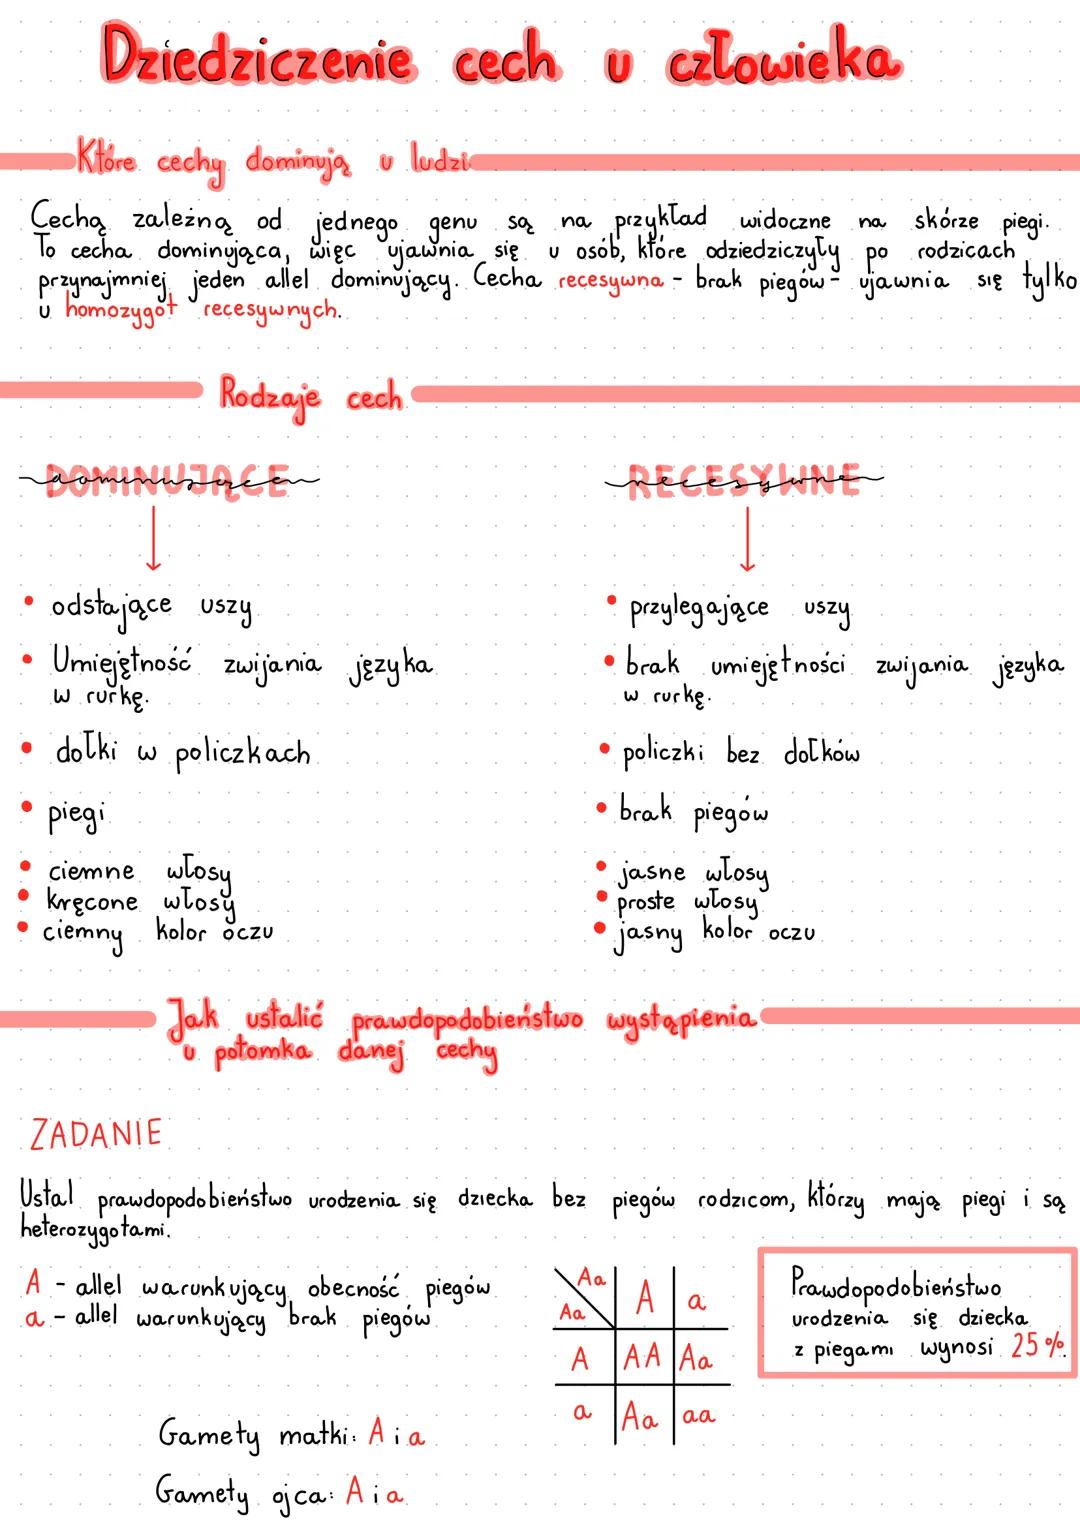 Dziedziczenie cech u człowieka
Które cechy dominują u ludzi
Cechą zależną od jednego genu są na przykład widoczne na skórze piegi.
To cecha dominująca, więc ujawnia się u osób, które odziedziczyły po rodzicach
przynajmniej jeden allel dominujący. Cecha recesywna - brak piegów - ujawnia się tylko
u homozygot recesywnych.
Rodzaje cech
DOMINUJĄCE
dominujące
RECESYWNE
recesywne
• odstające uszy
• przylegające uszy
• Umiejętność zwijania języka
w rurkę.
• brak umiejętności zwijania języka
w rurkę.
• dołki w policzkach
• policzki bez dołków
• piegi
• brak piegów
• ciemne włosy
• kręcone włosy
• ciemny kolor oczu
• jasne włosy
• proste włosy
• jasny kolor oczu
Jak ustalić prawdopodobieństwo wystąpienia
u potomka danej cechy
ZADANIE
Ustal prawdopodobieństwo urodzenia się dziecka bez piegów rodzicom, którzy mają piegi i są
heterozygotami.
A - allel warunkujący obecność piegów
a - allel warunkujący brak piegów
Gamety matki: A i a
Gamety ojca: A i a
Aa
Aa
A a
A AA Aa
a Aa aa
Prawdopodobieństwo
urodzenia się dziecka
z piegami wynosi 25%.